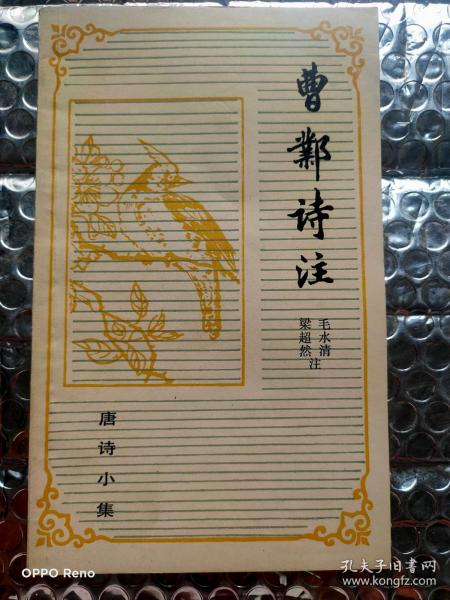 曹鄴诗注
毛水清
梁超然
注
唐诗小集
OPPO Reno
孔夫子旧书网
www.kongfz.com